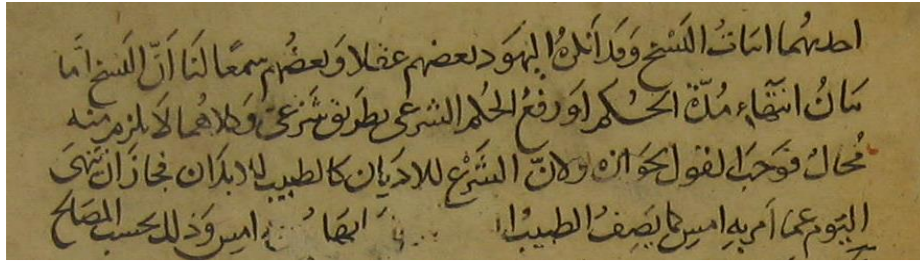 احدهما اثبات النسخ وقد انكره اليهود بعضهم عقلا وبعضهم سمعا لنا ان النسخ اما
بيان انتهاء مدة الحكم او رفع الحكم الشرعى بطريق شرعى وكلاهما لا يلزم منه
محال فوجب القول بجوازه ولان الشرع للاديان كالطبيب للابدان فجاز ان ينهى
اليوم عما امر به امس كما يصف الطبيب امس وذلك بحسب المصالح